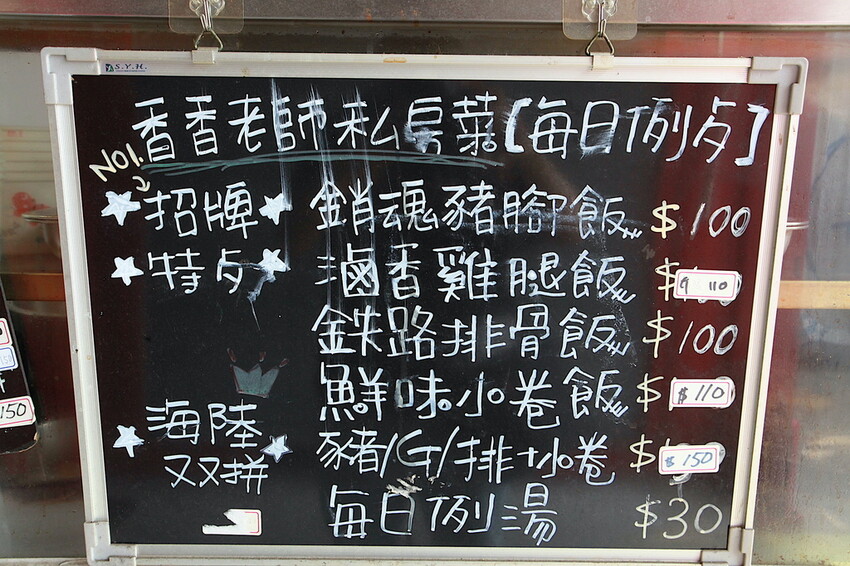 S.Y.H.
香香老師私房菜【每日例点】
NO1.
招牌 銷魂豬腳飯 $100
特点 滷香雞腿飯 $ 110
鉄路排骨飯 $100
鮮味小卷飯 $ $110
海陸
双双拼 豬/G/排+小卷 $ $150
每日例湯 $30
150